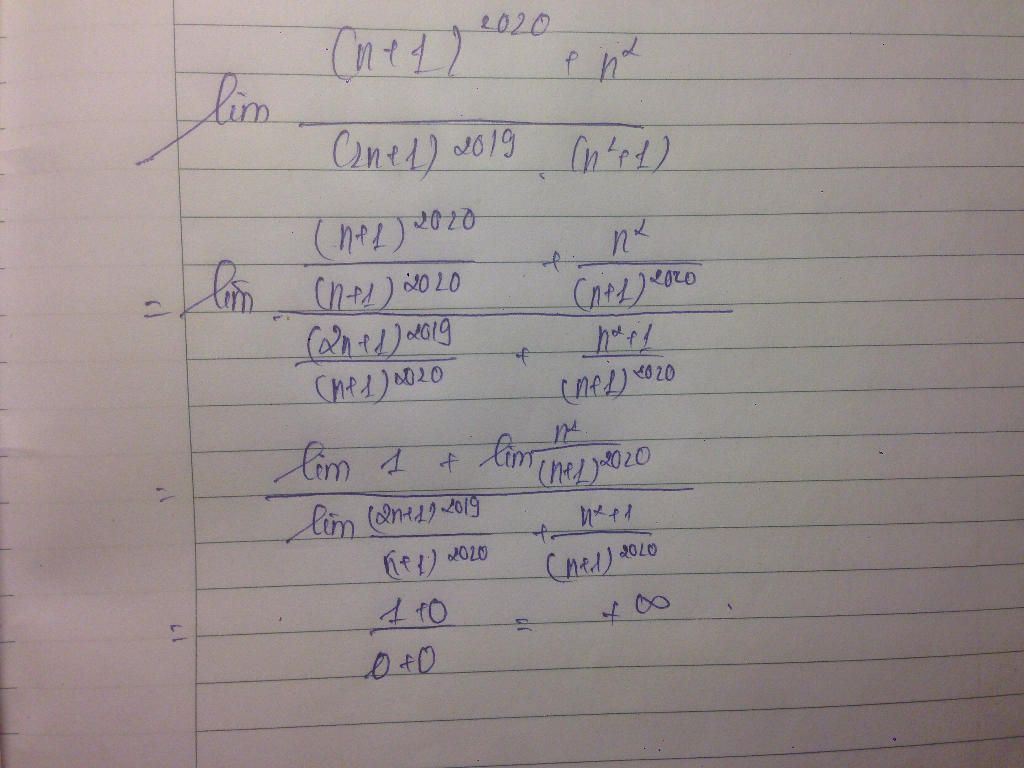 lim \frac{(n+1)^{2020} + n^2}{(2n+1)^{2019} . (n^2+1)}
= lim \frac{\frac{(n+1)^{2020}}{(n+1)^{2020}} + \frac{n^2}{(n+1)^{2020}}}{\frac{(2n+1)^{2019}}{(n+1)^{2020}} + \frac{n^2+1}{(n+1)^{2020}}}
= \frac{lim 1 + lim \frac{n^2}{(n+1)^{2020}}}{lim \frac{(2n+1)^{2019}}{n+1)^{2020}} + \frac{n^2+1}{(n+1)^{2020}}}
= \frac{1+0}{0+0} = +∞ .